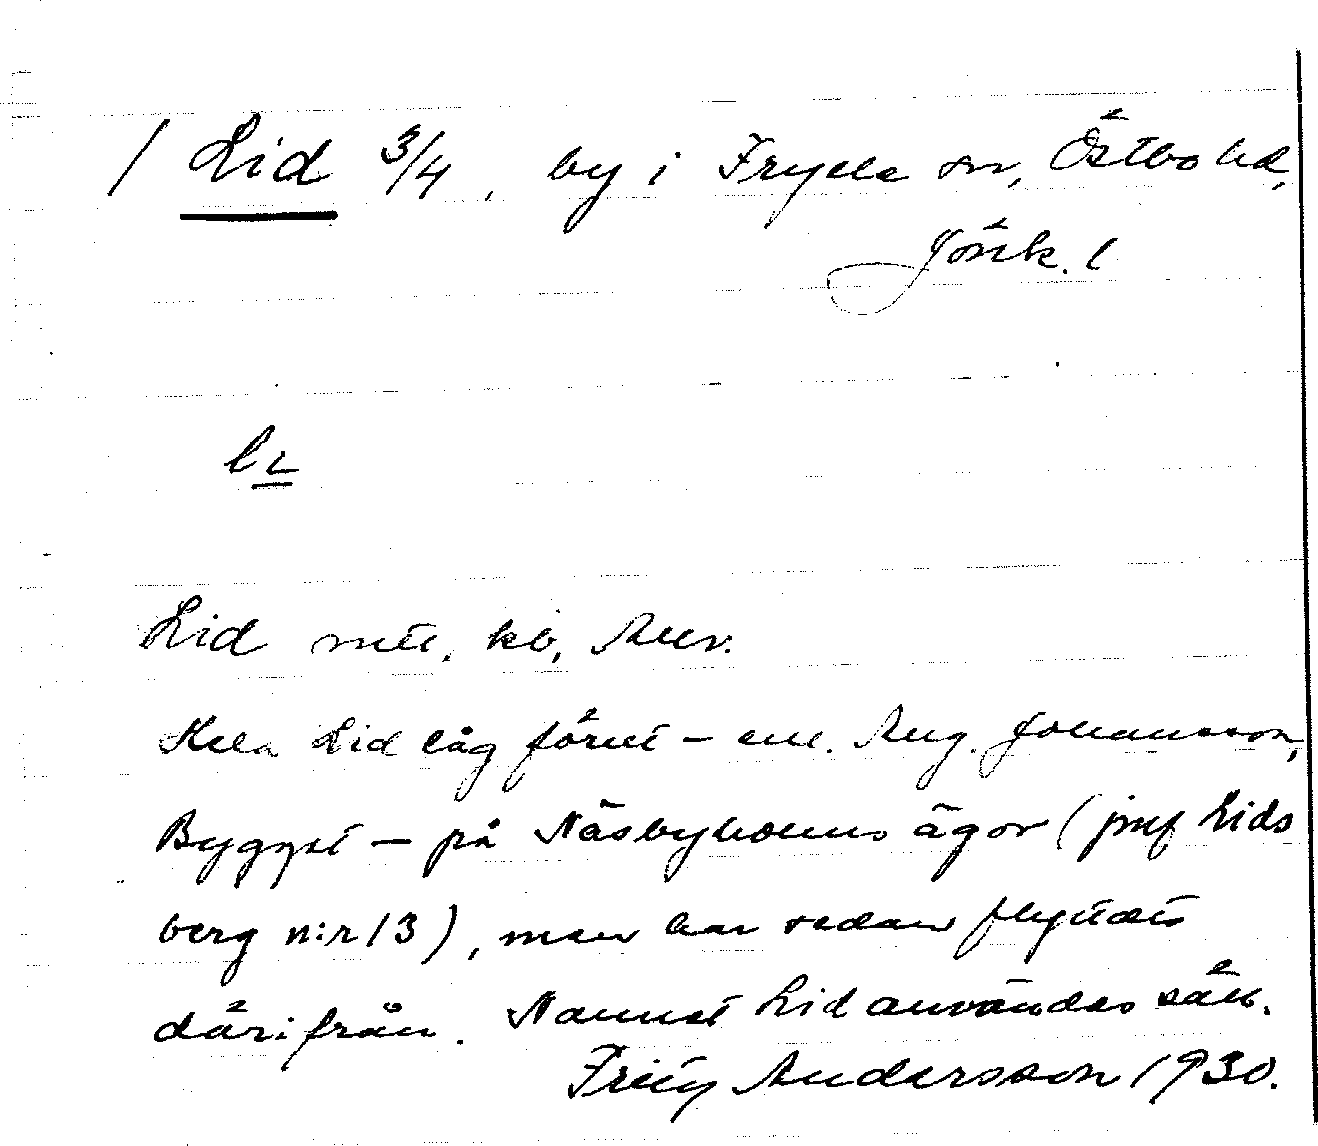 / Lid 3/4, by i Fryele sn, Östbo hd,
Jönk. l
li
Lid mtl. kb,
Hela Lid låg förut – enl. Aug. Johansson,
Bygget – på Näsbyholms ägor (jmf Lids
berg n:r 13), men har sedan flyttats
därifrån. Namnet Lid användes säll.
Andersson 1930.